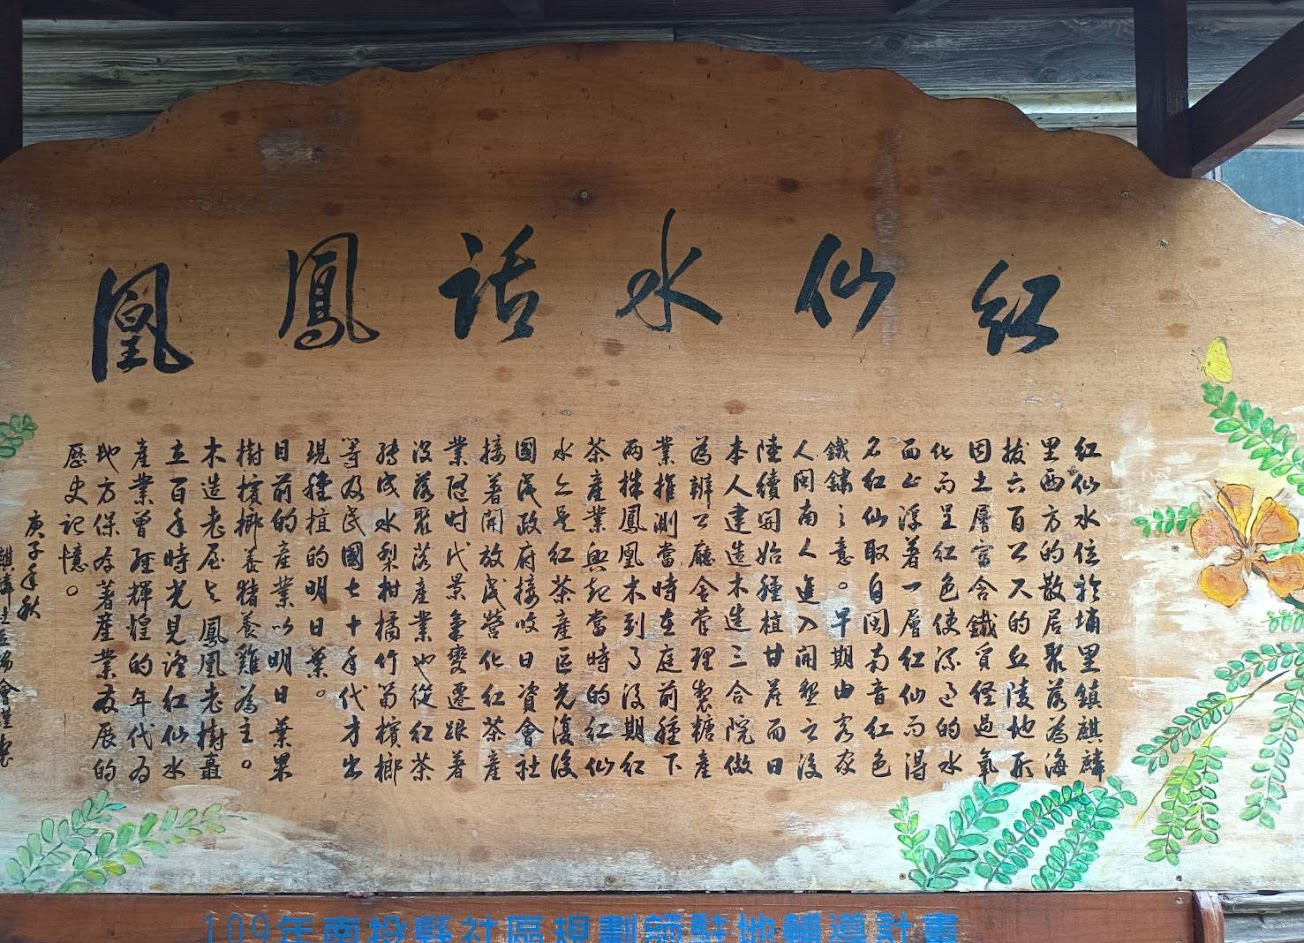 紅仙水話鳳凰
紅仙水位於埔里鎮麒麟
里西方的散居聚落為海
拔六百公尺的丘陵地形
因土層富含鐵質經過氧
化而呈紅色使流過的水
面上浮著一層紅仙而得
名紅仙取自閩南音紅色
鐵鏽之意。早期由客家
人閩南人進入開墾之後
陸續開始種植甘蔗而日
本人建造木造三合院做
為辦公廳舍管理製糖產
業推測當時在庭前種下
兩株鳳凰木到了後期紅
茶產業興起當時的紅仙
水亦是紅茶產區光復後
國民政府接收日資會社
接著開放民營化紅茶產
業隨時代景氣變遷跟著
沒落聚落產業也從紅茶
轉成水梨柑橘竹筍檳榔
等及民國七十年代才出
現種植的明日葉。
目前的產業以明日葉果
樹檳榔養豬養雞為主。
木造老屋與鳳凰老樹矗
立百年時光見證紅仙水
產業曾經輝煌的年代為
地方保存著產業發展的
歷史記憶。
庚子年秋
麒麟社區
109年南投縣社區規劃師駐地輔導計畫